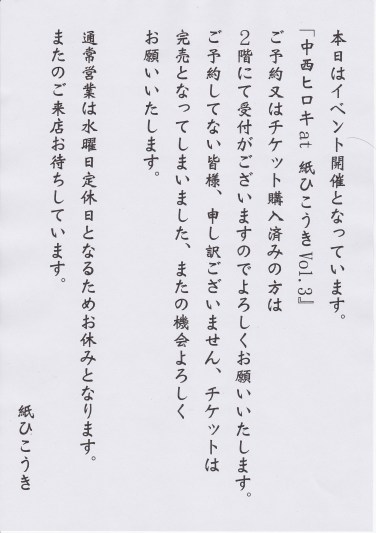 本日はイベント開催となっています。
「中西ヒロキat 紙ひこうきVol.3』
ご予約又はチケット購入済みの方は
2階にて受付がございますのでよろしくお願いいたします。
ご予約してない皆様、申し訳ございません、チケットは
完売となってしまいました、またの機会よろしく
お願いいたします。
通常営業は水曜日定休日となるためお休みとなります。
またのご来店お待ちしています。
紙ひこうき